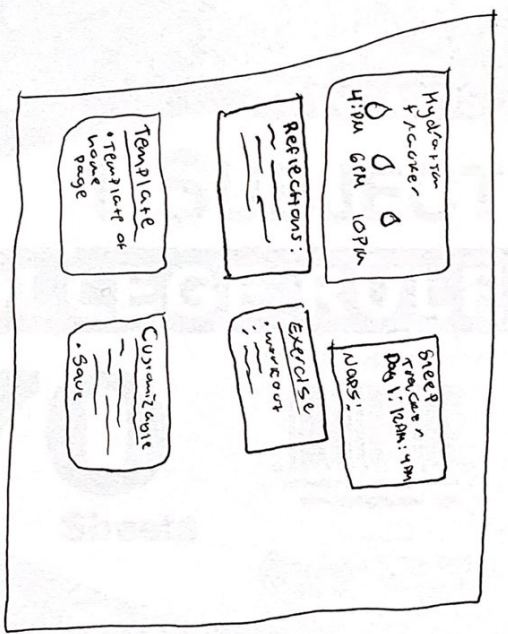 Hydration
tracker
4:PM 6PM 10PM
Sleep
Tracker
Day 1: 12AM: 4PM
Naps:
Reflections:
Exercise
• workout
Template
• Template of
home
page
Customizable
• Save